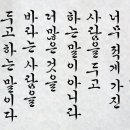 너무 적게 가진
사람을 두고
하는 말이 아니라
더 많은 것을
바라는 사람을
두고 하는 말이다